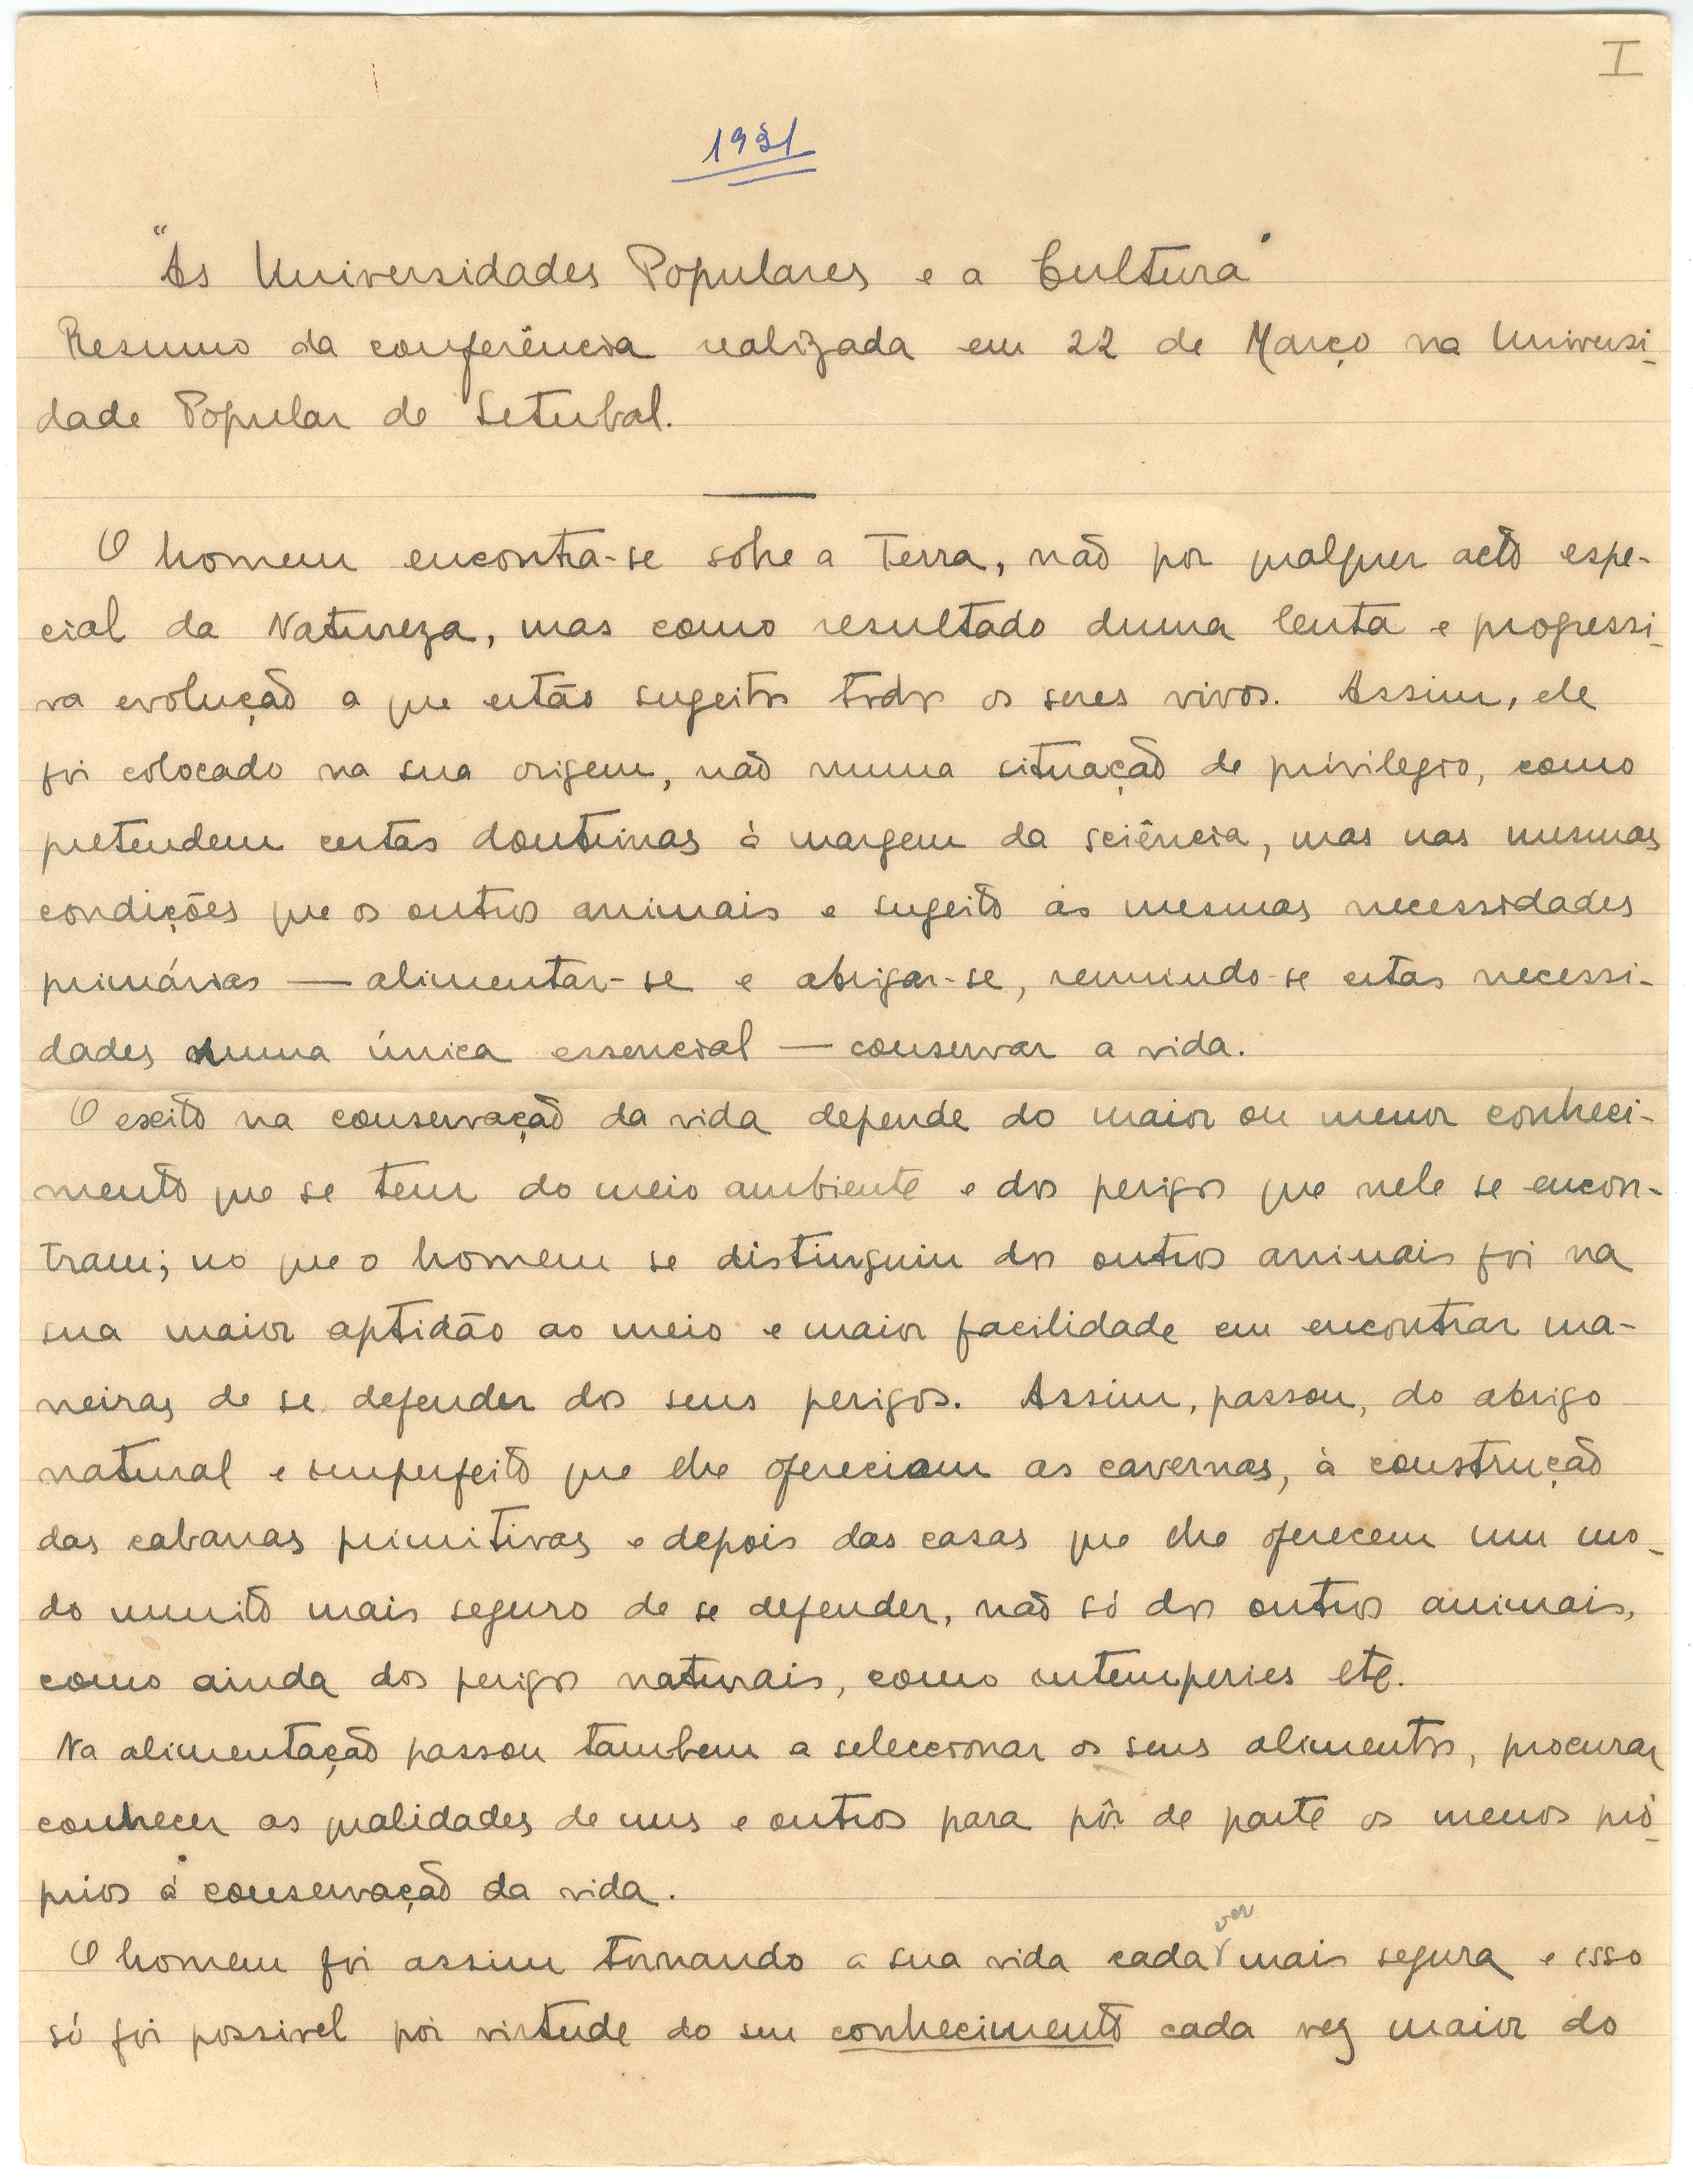 I
1931
"As Universidades Populares e a Cultura"
Resumo da conferência realizada em 22 de Março na Universi-
dade Popular de Setubal.
O homem encontra-se sobre a Terra, não por qualquer acto espe-
cial da Natureza, mas como resultado duma lenta e progressi-
va evolução a que estão sugeitos todos os seres vivos. Assim, ele
foi colocado na sua origem, não numa situação de privilegio, como
pretendem certas doutrinas à margem da sciência, mas nas mesmas
condições que os outros animais e sugeito ás mesmas necessidades
primárias — alimentar-se e abrigar-se, reunindo-se estas necessi-
dades numa única essencial — conservar a vida.
O exito na conservação da vida depende do maior ou menor conheci-
mento que se tem do meio ambiente e dos perigos que nele se encon-
tram; no que o homem se distinguiu dos outros animais foi na
sua maior aptidão ao meio e maior facilidade em encontrar ma-
neiras de se defender dos seus perigos. Assim, passou, do abrigo
natural e imperfeito que lhe ofereciam as cavernas, à construção
das cabanas primitivas e depois das casas que lhe oferecem um mo-
do muito mais seguro de se defender, não só dos outros animais,
como ainda dos perigos naturais, como intemperies etc.
Na alimentação passou tambem a seleccionar os seus alimentos, procurar
conhecer as qualidades de uns e outros para pôr de parte os menos pró-
prios à conservação da vida.
O homem foi assim tornando a sua vida cada vez mais segura e isso
só foi possivel por virtude do seu conhecimento cada vez maior do